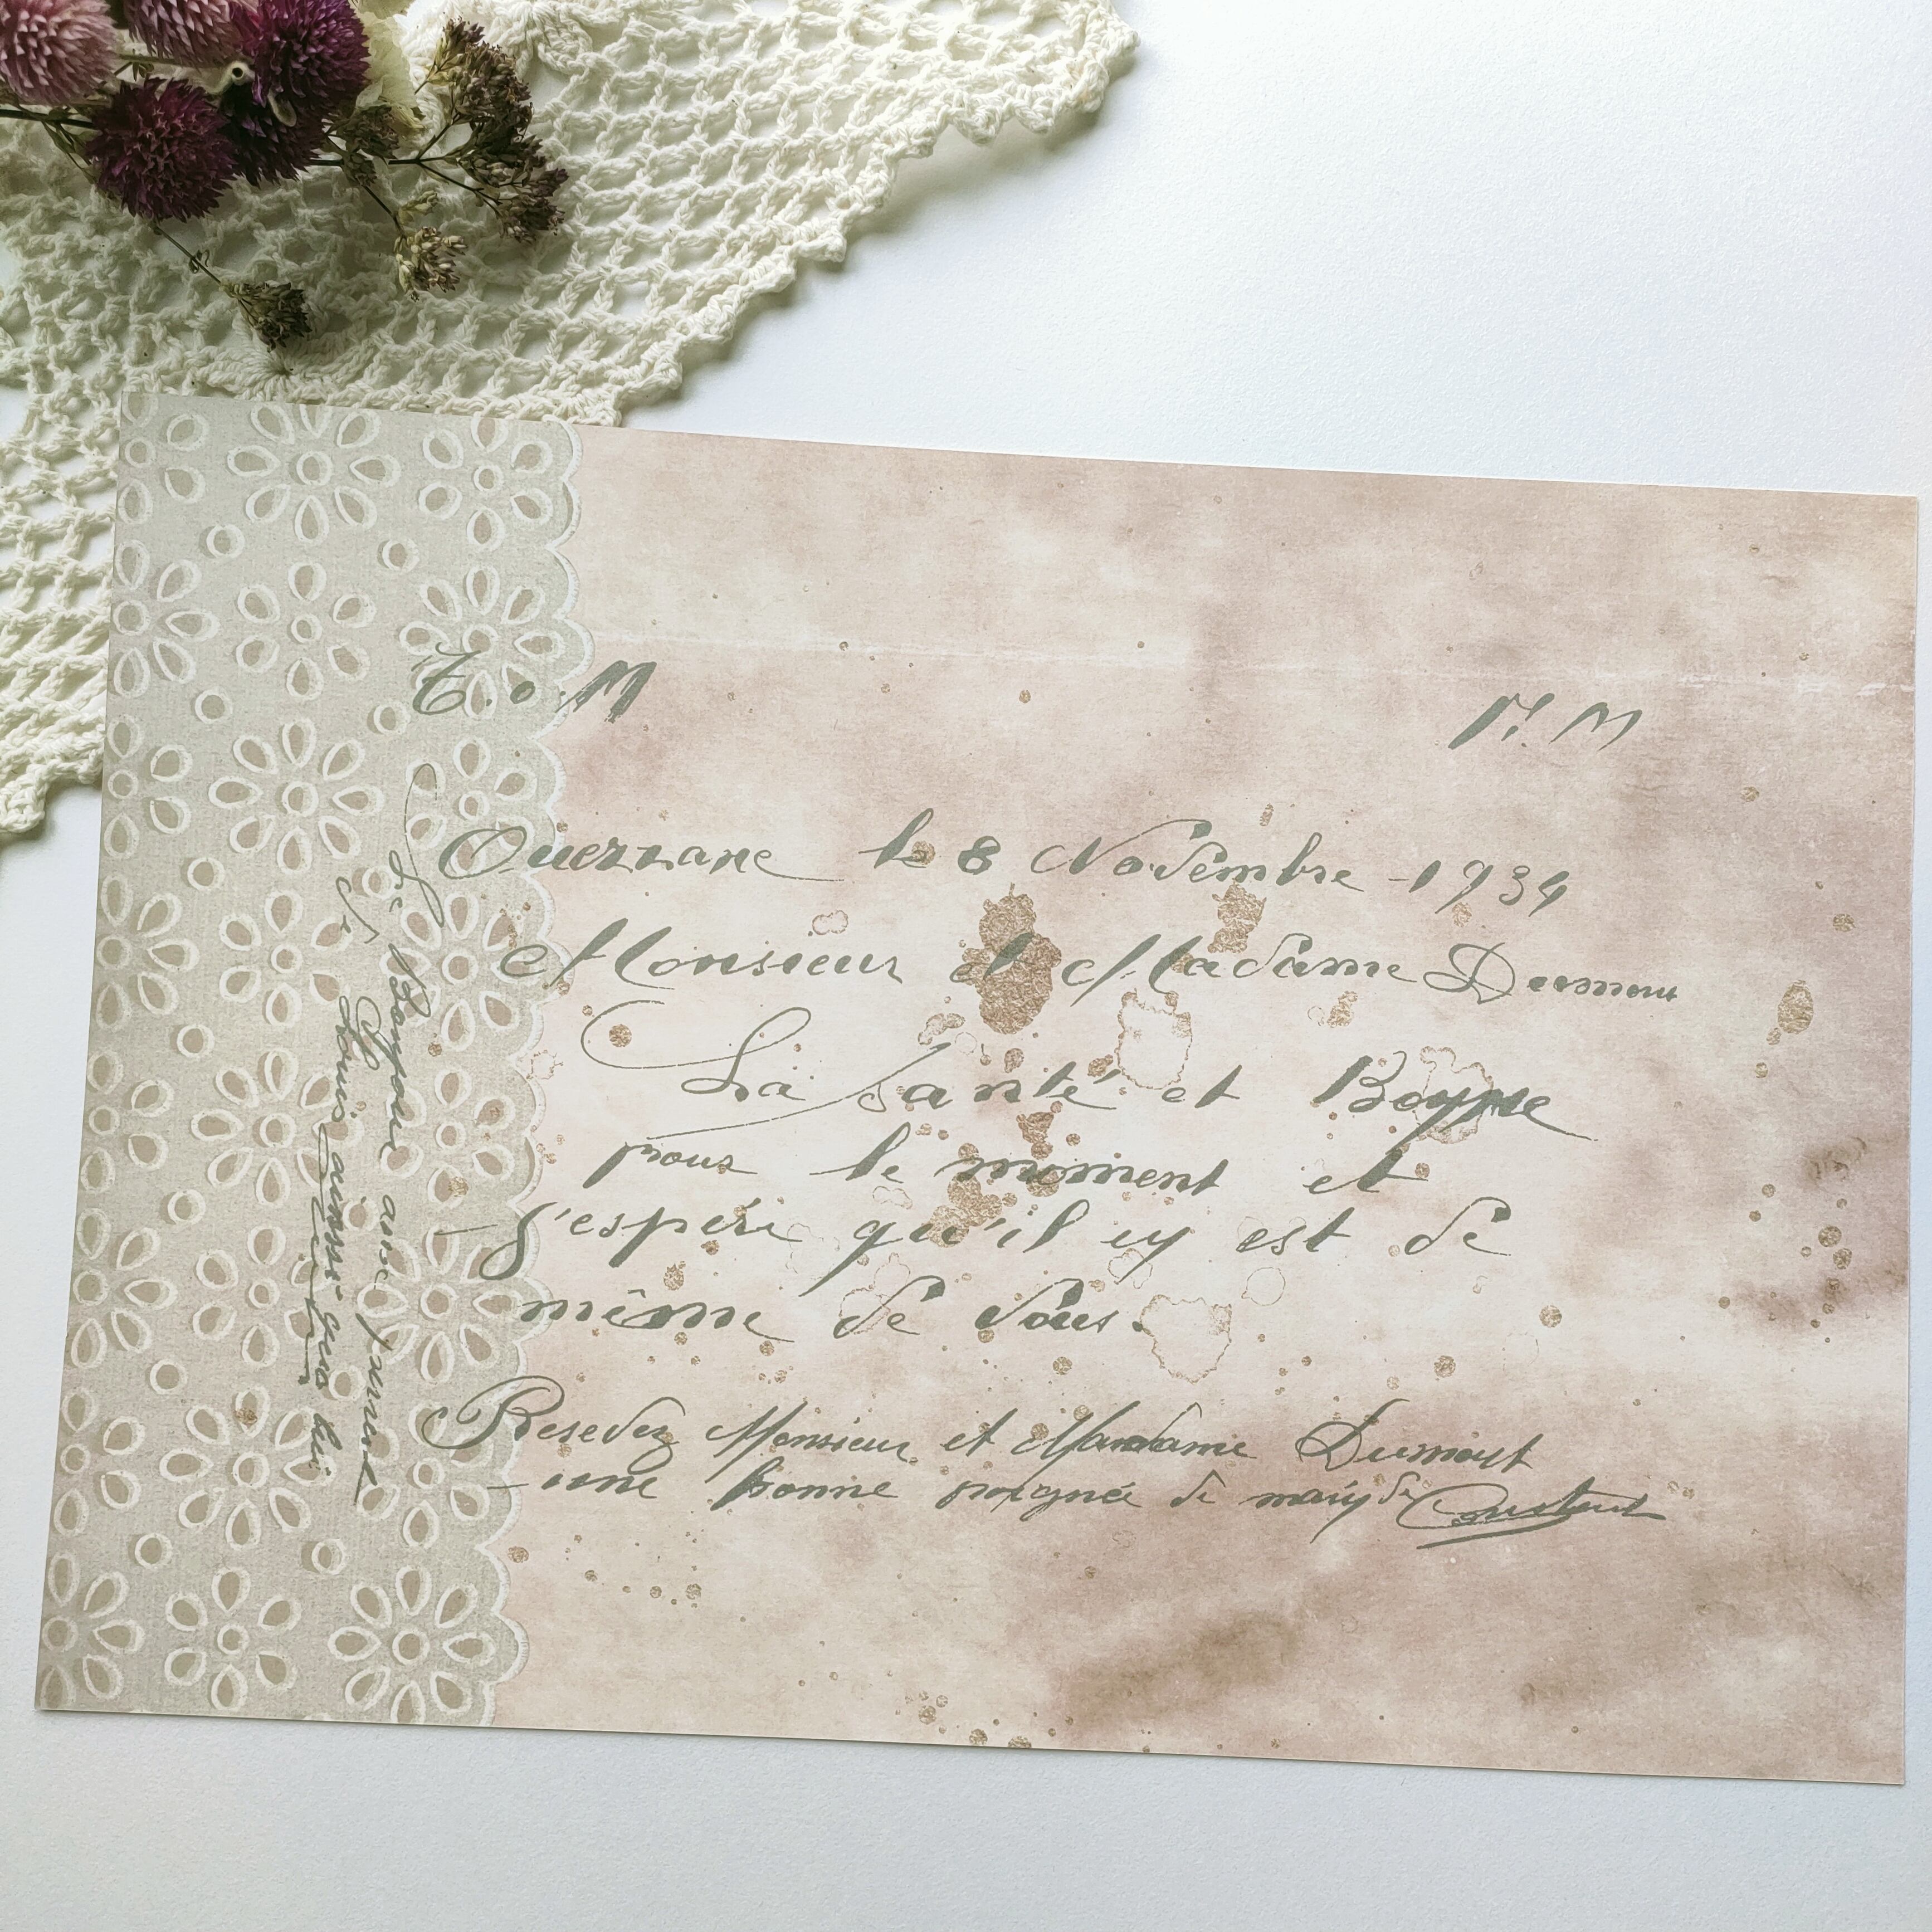 T. o. M
P. M
Ouezzane le 8 Novembre -1934
Monsieur et Madame Dumont
La Santé et Bonne
pour le moment et
j'espére qu'il ey est de
même de Vous.
Resevez Monsieur et Madame Dumont
une bonne poignée de maiy de Constant
Le Bonjour
à Louis aussi que lui